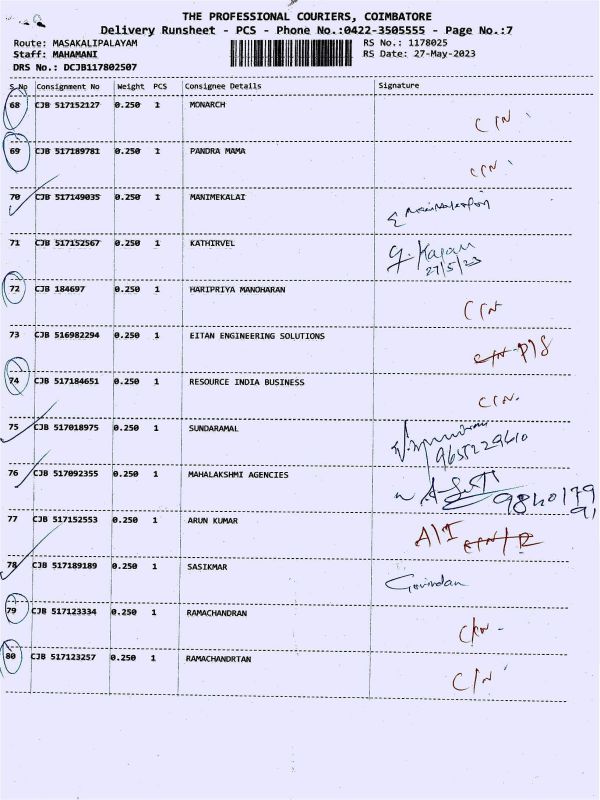 THE PROFESSIONAL COURIERS, COIMBATORE
Delivery Runsheet - PCS - Phone No.:0422-3505555 - Page No.:7
Route: MASAKALIPALAYAM RS No.: 1178025
Staff: MAHAMANI RS Date: 27-May-2023
DRS No.: DCJB117802507
S.No Consignment No Weight PCS Consignee Details Signature
68 CJB 517152127 0.250 1 MONARCH C/N
69 CJB 517189781 0.250 1 PANDRA MAMA C/N
70 CJB 517149035 0.250 1 MANIMEKALAI
71 CJB 517152567 0.250 1 KATHIRVEL
27/5/23
72 CJB 184697 0.250 1 HARIPRIYA MANOHARAN C/N
73 CJB 516982294 0.250 1 EITAN ENGINEERING SOLUTIONS
74 CJB 517184651 0.250 1 RESOURCE INDIA BUSINESS C/N
75 CJB 517018975 0.250 1 SUNDARAMAL
76 CJB 517092355 0.250 1 MAHALAKSHMI AGENCIES
77 CJB 517152553 0.250 1 ARUN KUMAR A/I
78 CJB 517189189 0.250 1 SASIKMAR Govindan
79 CJB 517123334 0.250 1 RAMACHANDRAN C/N
80 CJB 517123257 0.250 1 RAMACHANDRTAN C/N